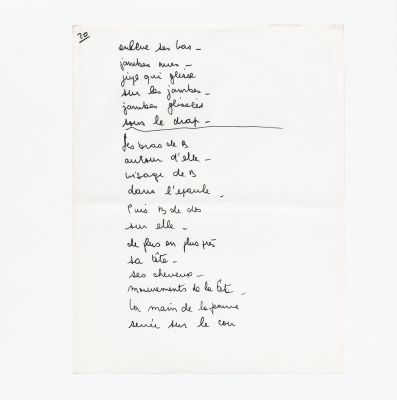 20
enlève ses bas –
jambes nues –
jupe qui glisse
sur les jambes –
jambes glissées
sous le drap –
les bras de B
autour d'elle –
visage de B
dans l'épaule –
Puis B de dos
sur elle –
de plus en plus près
sa tête –
ses cheveux –
mouvements de la tête –
La main de la femme
serrée sur le cou